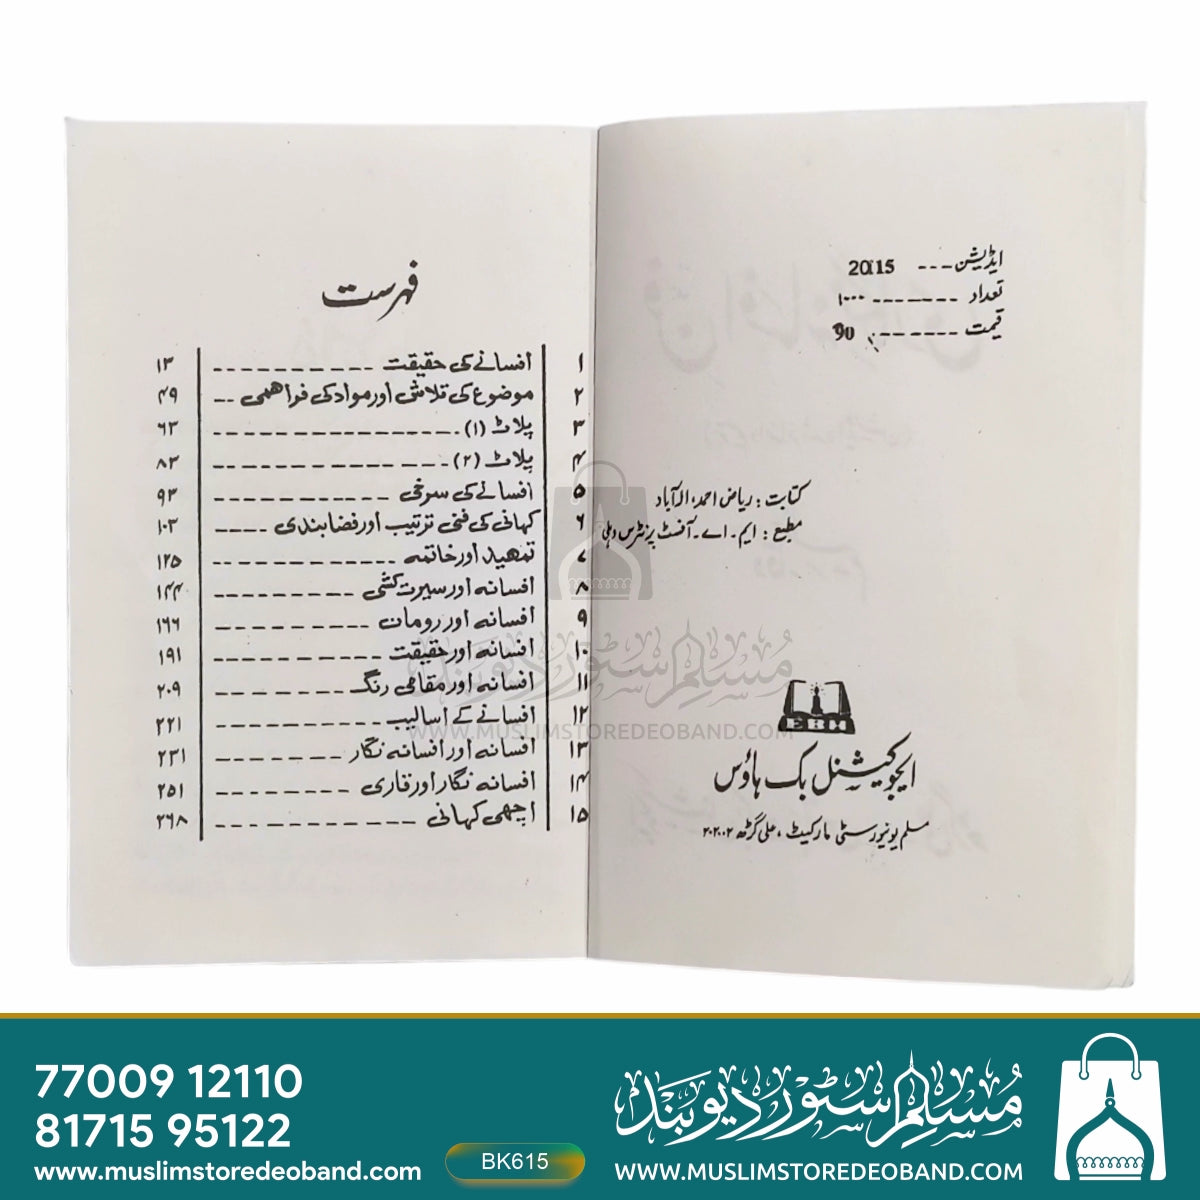 ایڈیشن --- 2015
تعداد ------- ۱۰۰۰
قیمت ------- 90
کتابت : ریاض احمد، الہ آباد
مطبع : ایم - اے - آفسٹ پرنٹرس دہلی
EBH
ایجوکیشنل بک ہاؤس
مسلم یونیورسٹی مارکیٹ ، علی گڑھ ۲۰۲۰۰۲
فہرست
۱ افسانے کی حقیقت ---------- ۱۳
۲ موضوع کی تلاش اور مواد کی فراہمی -- ۴۹
۳ پلاٹ (۱) -------------- ۶۳
۴ پلاٹ (۲) -------------- ۸۳
۵ افسانے کی سرخی ----------- ۹۳
۶ کہانی کی فنی ترتیب اور فضا بندی ---- ۱۰۳
۷ تمھید اور خاتمہ ---------- ۱۲۵
۸ افسانہ اور سیرت کشی --------- ۱۴۴
۹ افسانہ اور رومان ---------- ۱۶۶
۱۰ افسانہ اور حقیقت ---------- ۱۹۱
۱۱ افسانہ اور مقامی رنگ -------- ۲۰۹
۱۲ افسانے کے اسالیب ---------- ۲۲۱
۱۳ افسانہ اور افسانہ نگار -------- ۲۳۱
۱۴ افسانہ نگار اور قاری --------- ۲۵۱
۱۵ اچھی کہانی ------------- ۲۶۸
مسلم سٹور دیوبند
WWW.MUSLIMSTOREDEOBAND.COM
77009 12110
81715 95122
www.muslimstoredeoband.com
BK615
مسلم سٹور دیوبند
WWW.MUSLIMSTOREDEOBAND.COM